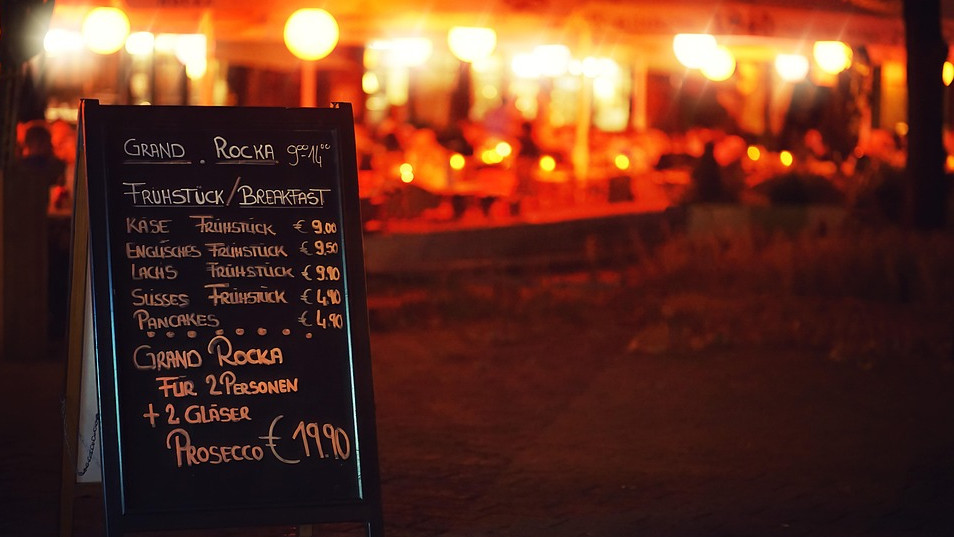 GRAND . ROCKA 9⁰⁰-14⁰⁰
FRÜHSTÜCK/BREAKFAST
KÄSE FRÜHSTÜCK € 9,00
ENGLISCHES FRÜHSTÜCK € 9,50
LACHS FRÜHSTÜCK € 9,90
SÜSSES FRÜHSTÜCK € 4,90
PANCAKES € 4,90
GRAND ROCKA
FÜR 2 PERSONEN
+ 2 GLÄSER
PROSECCO € 19.90